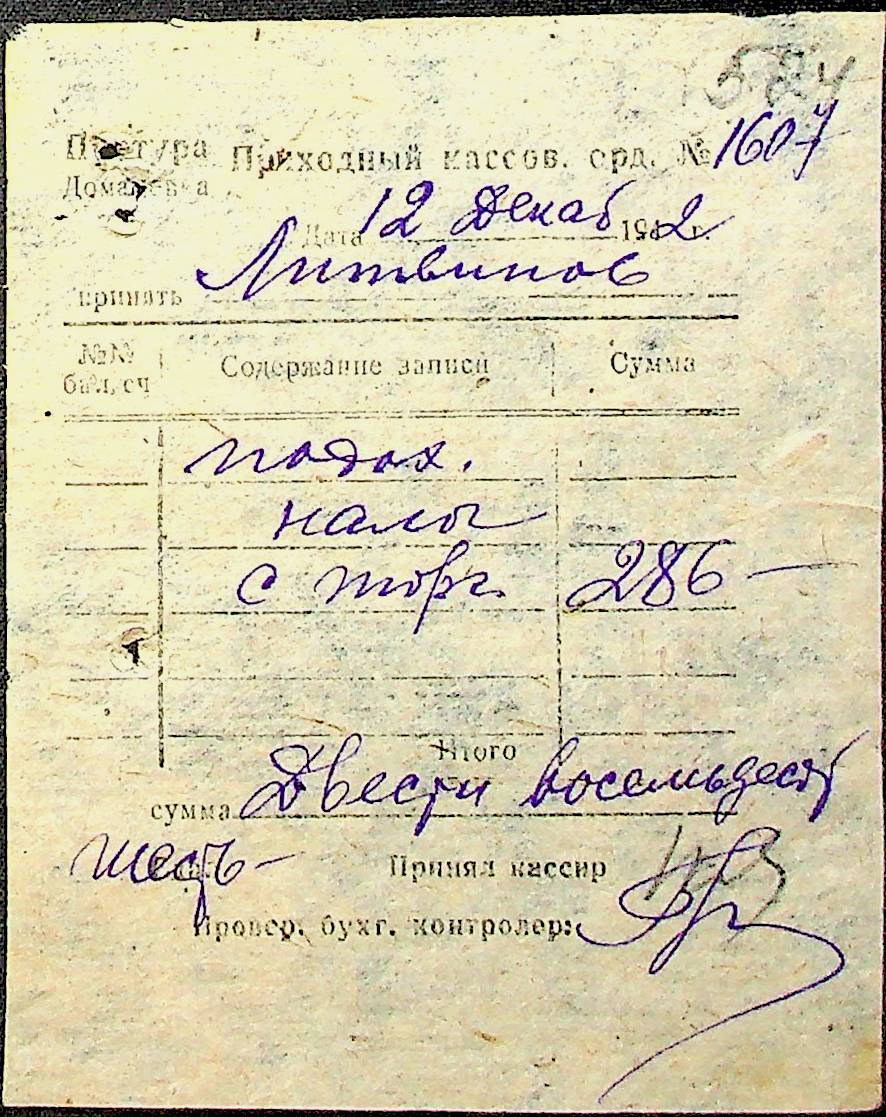 524
Претура Приходный кассов. орд. № 1607
Домановка
Дата 12 Декаб 1942 г.
принять Литвинов
№№ бал. сч Содержание записи Сумма
подох.
налог
с торг. 286 —
Итого
сумма Двести восемьдесят
шесть —
Принял кассир
Провер. бухг. контролер: